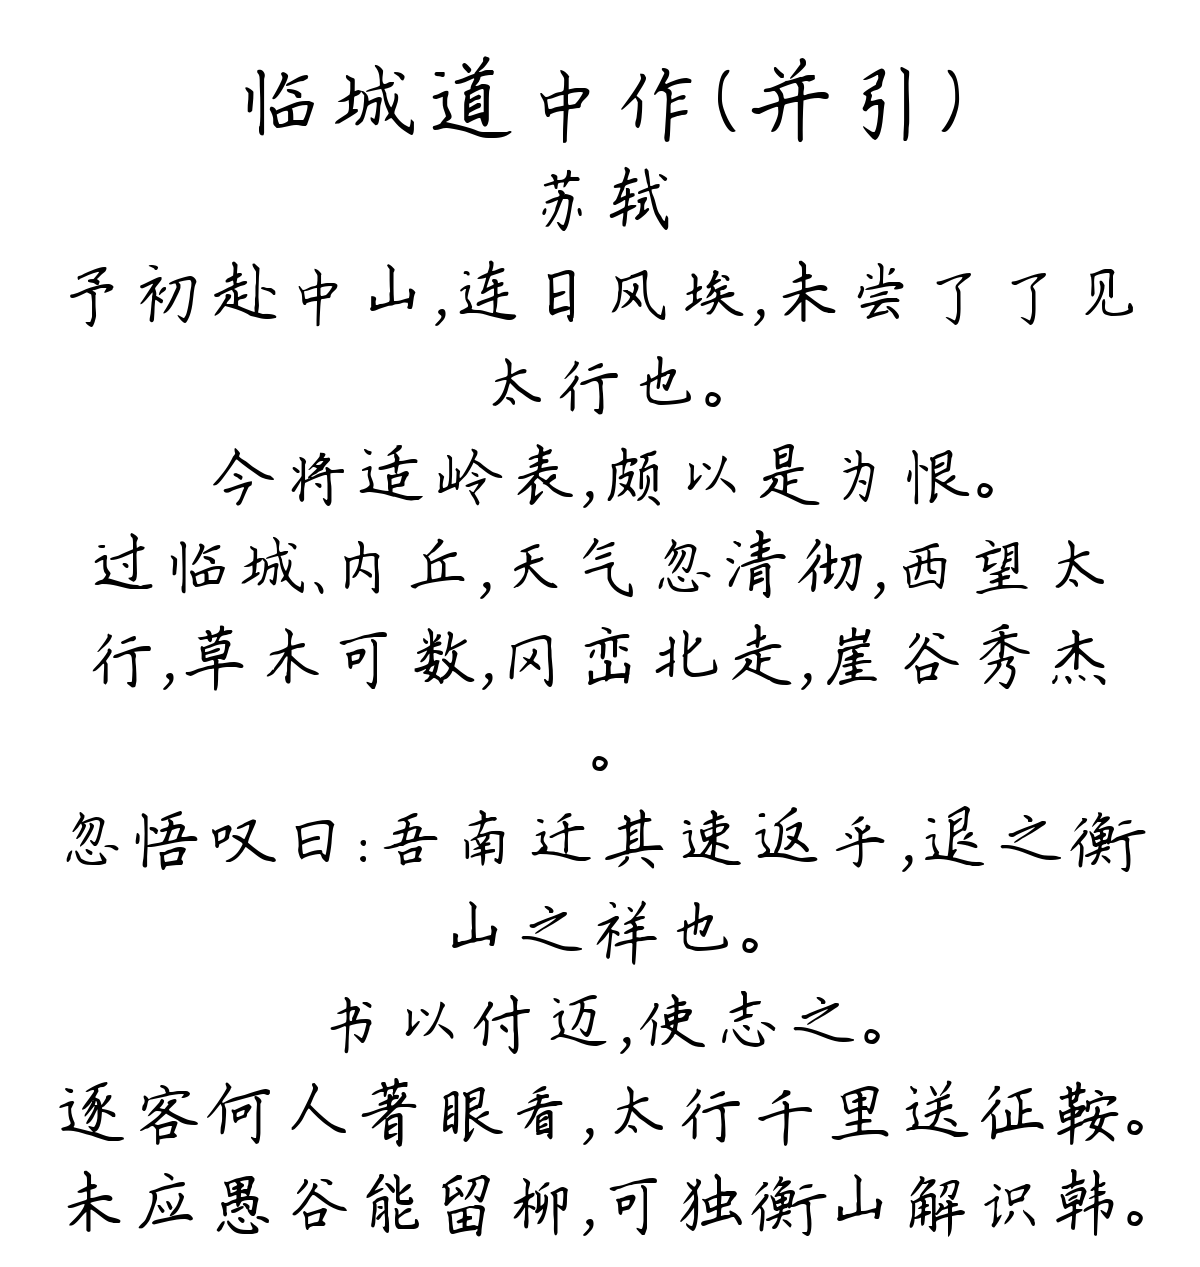 临城道中作(并引)
苏轼
予初赴中山,连日风埃,未尝了了见
太行也。
今将适岭表,颇以是为恨。
过临城、内丘,天气忽清彻,西望太
行,草木可数,冈峦北走,崖谷秀杰
。
忽悟叹曰:吾南迁其速返乎,退之衡
山之祥也。
书以付迈,使志之。
逐客何人著眼看,太行千里送征鞍。
未应愚谷能留柳,可独衡山解识韩。